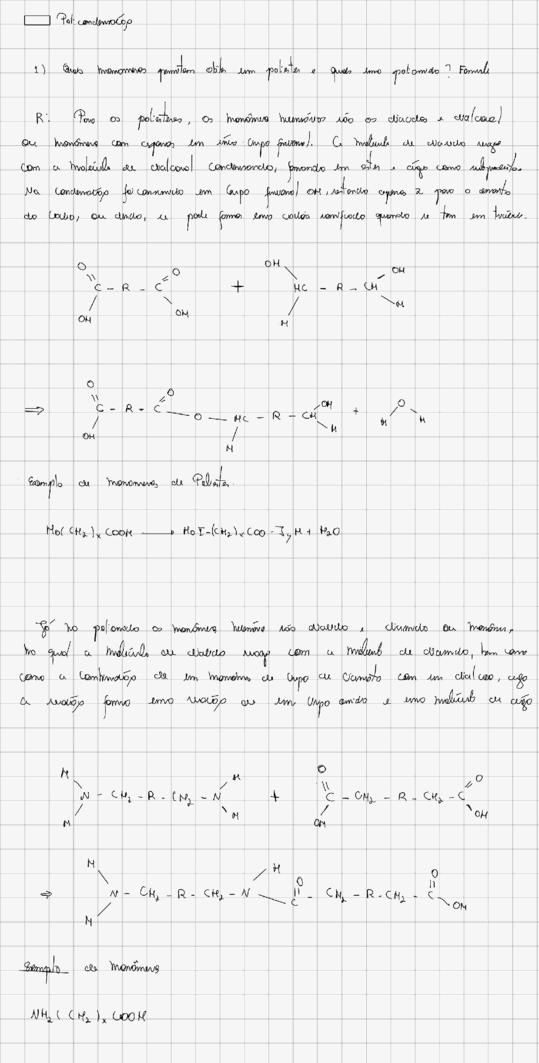 Policondensação
1) Quais monomeros permitem obter um poliester e quais uma poliamida? Formule
R: Para os poliésteres, os monômeros necessários são os diácidos e dialcool
ou monômeros com apenas um único Grupo funcional. A molécula de diácido reage
com a molécula de dialcool condensando, formando um ester e água como subproduto.
Na condensação foi consumido um Grupo funcional OH, restando apenas 2 para o
do, ou ainda, se pode formar uma cadeia ramificada quando se tem um
O O OH OH
C - R - C + HC - R - CH
OH OH H H
O O
⇒ C - R - C - O - HC - R - CH OH + O
OH H H H H
Exemplo de monomeros de Poliester
HO(CH2)x COOH → HO[-(CH2)x COO-]y H + H2O
Já na poliamida os monômeros são diácido e diamida ou monômeros,
no qual a molécula de diácido reage com a molécula de diamida, bem como
como a combinação de um monômero de Grupo de com um dialcool,
a reação forma uma reação de um Grupo amida e uma molécula de água
H H O O
N - CH2 - R - CH2 - N + C - CH2 - R - CH2 - C
H H OH OH
H H O O
⇒ N - CH2 - R - CH2 - N C - CH2 - R - CH2 - C
H OH
Exemplo de monômeros
NH2(CH2)x COOH